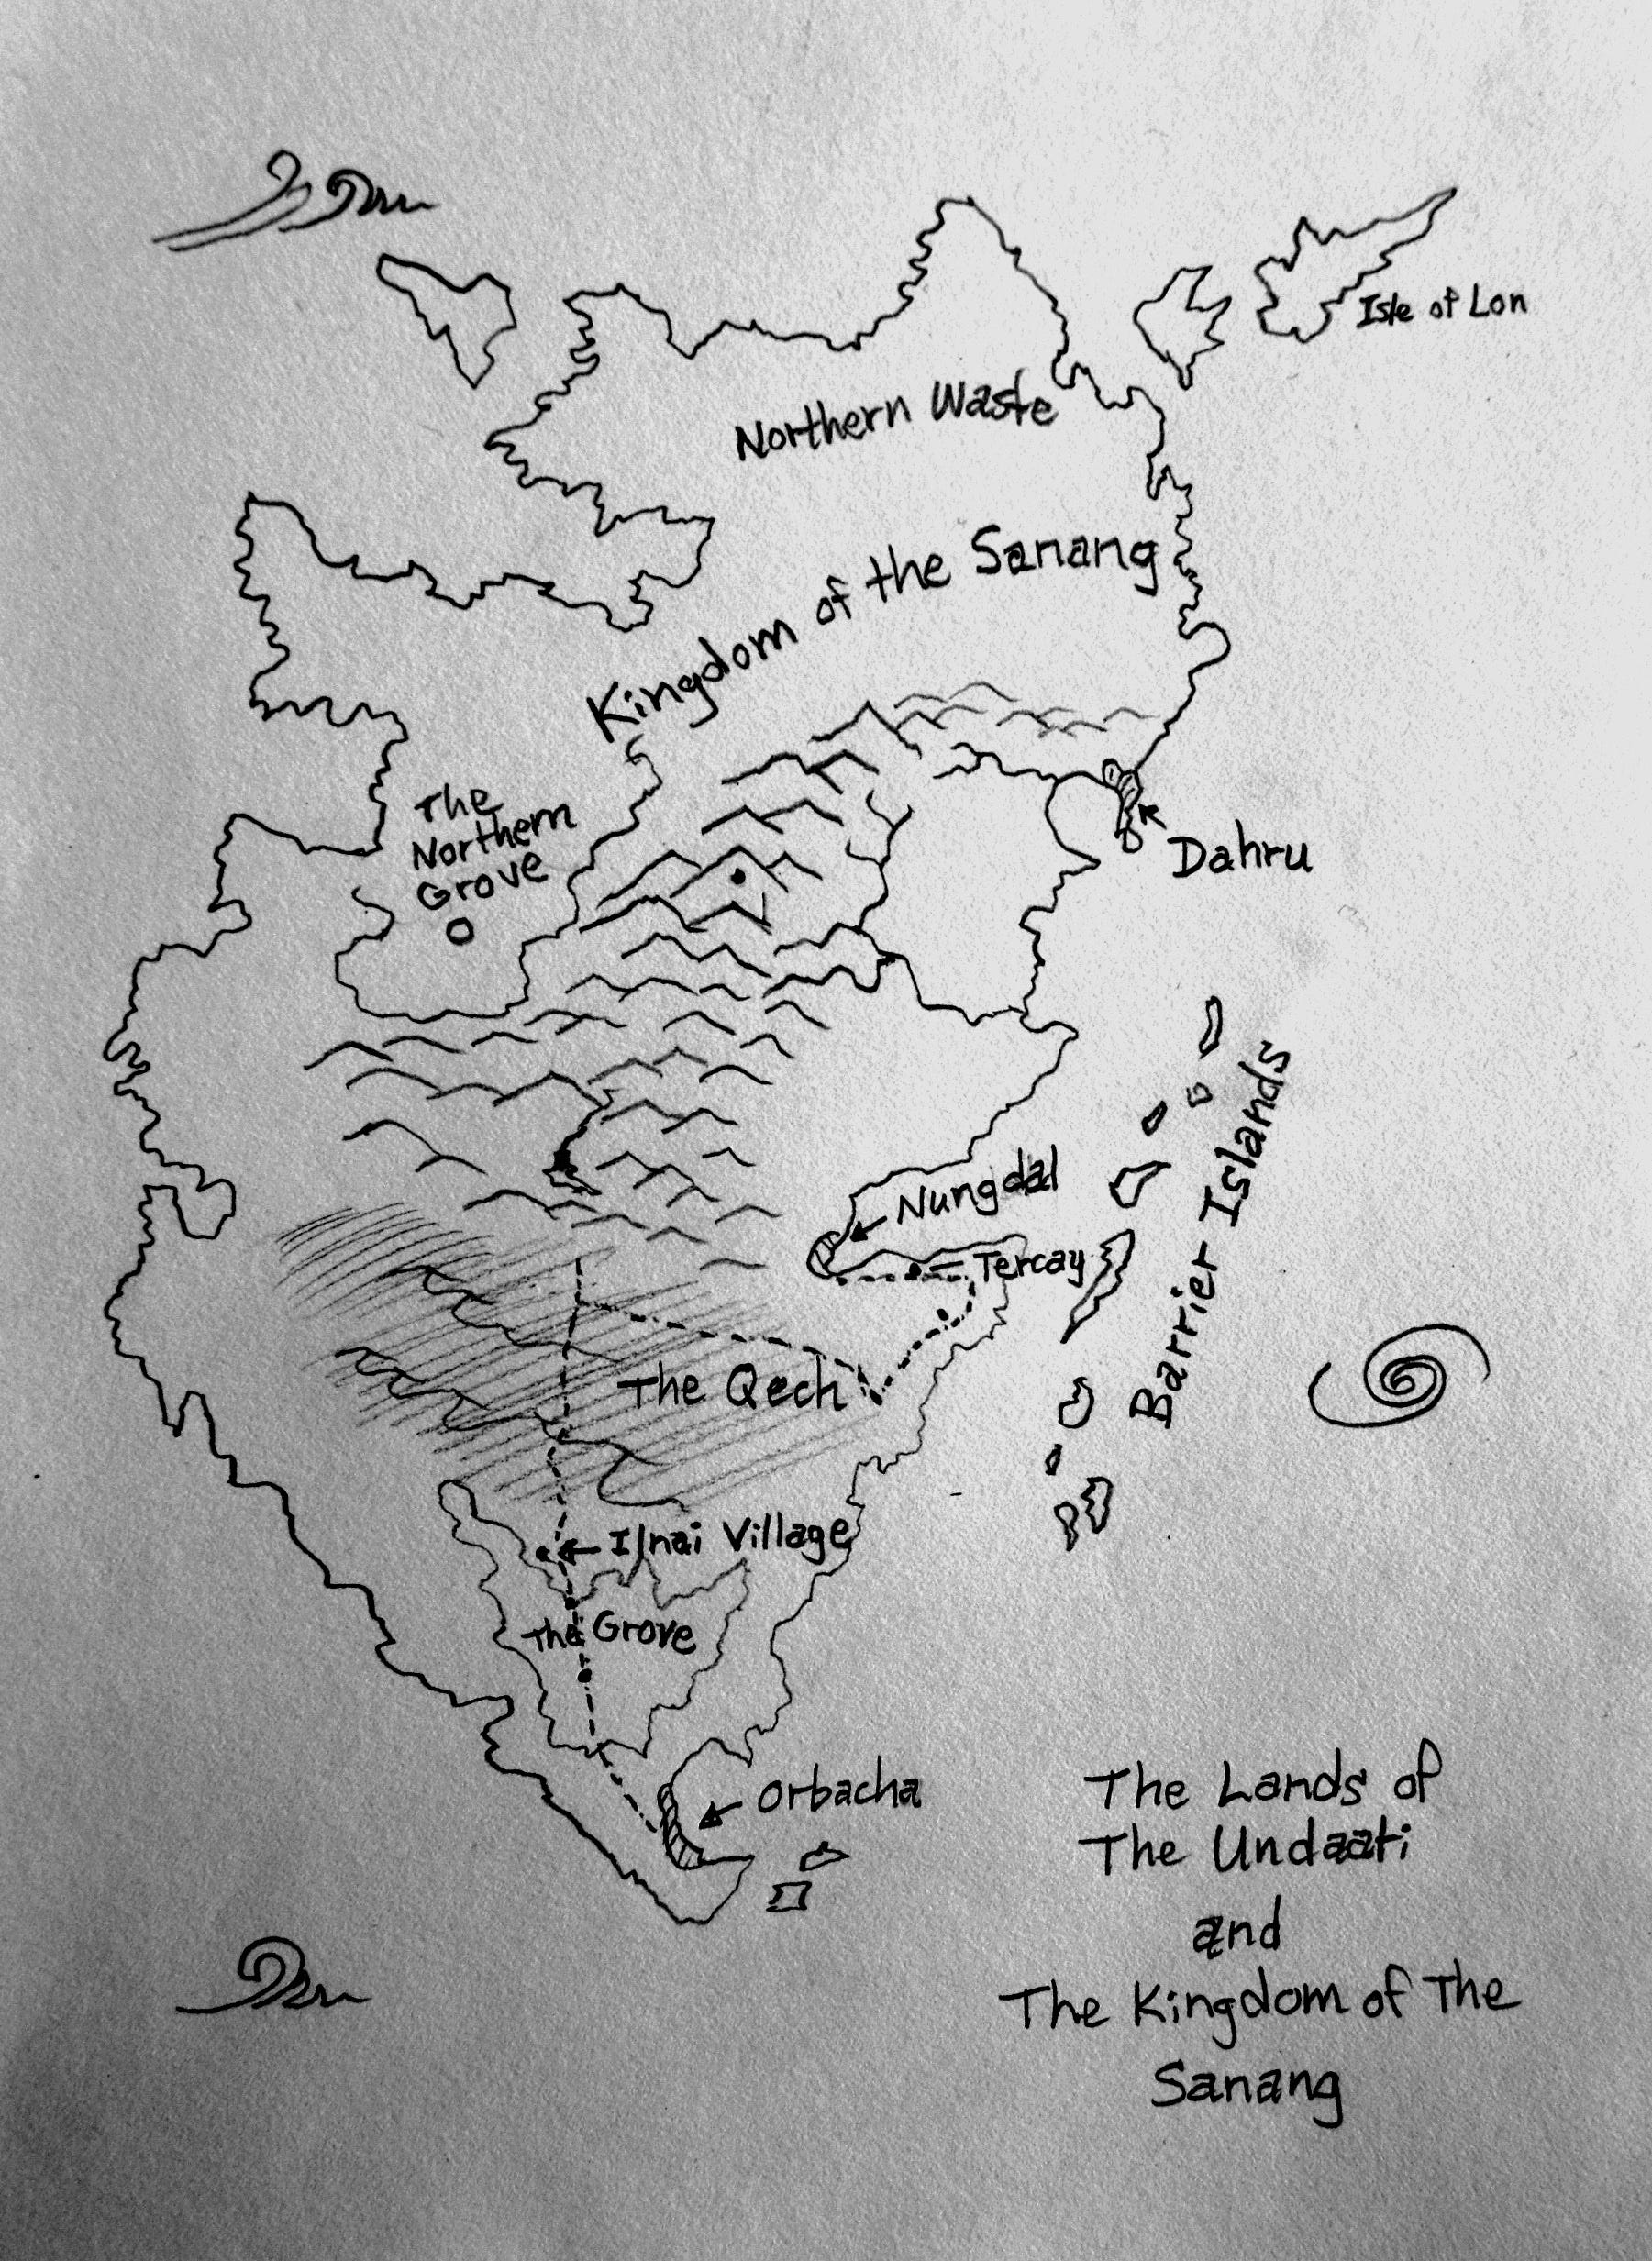 Isle of Lon
Northern Waste
Kingdom of the Sanang
The
Northern
Grove
Dahru
Barrier Islands
Nungdal
Tercay
The Qech
Ilnai Village
The Grove
Orbacha
The Lands of
The Undaati
and
The Kingdom of The
Sanang